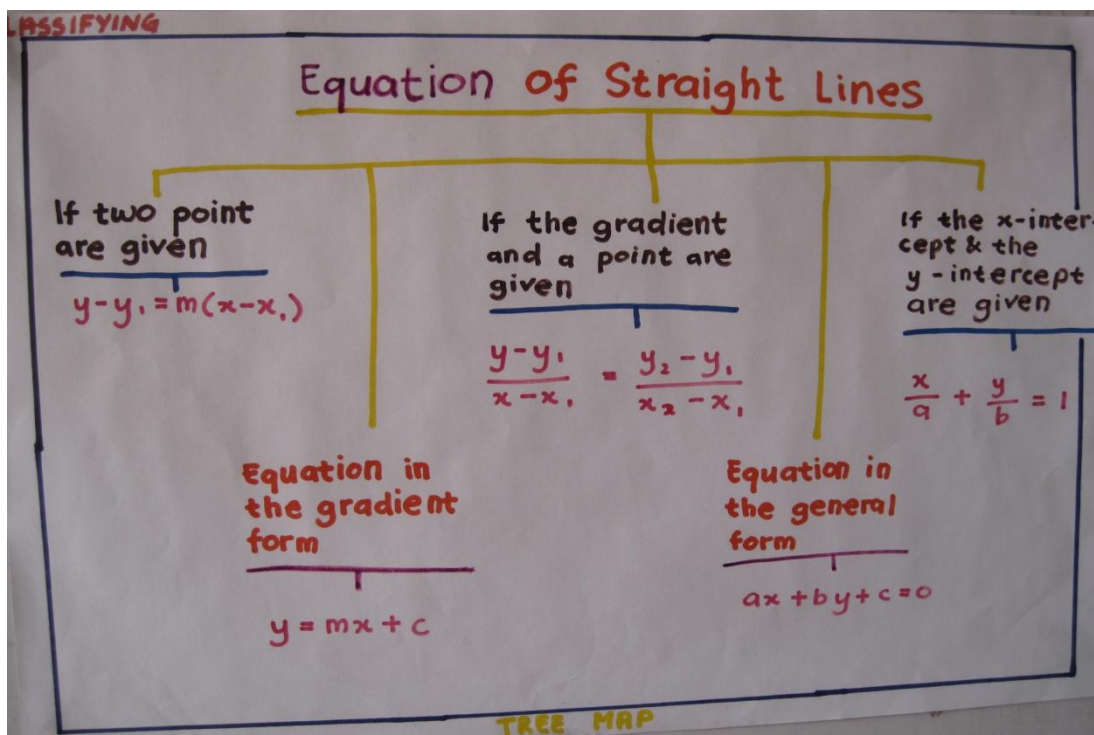 LASSIFYING
Equation of Straight Lines
If two point
are given
y-y₁=m(x-x₁)
Equation in
the gradient
form
y = mx + c
If the gradient
and a point are
given
y-y₁/x-x₁ = y₂-y₁/x₂-x₁
Equation in
the general
form
ax+by+c=0
If the x-inter-
cept & the
y-intercept
are given
x/a + y/b = 1
TREE MAP